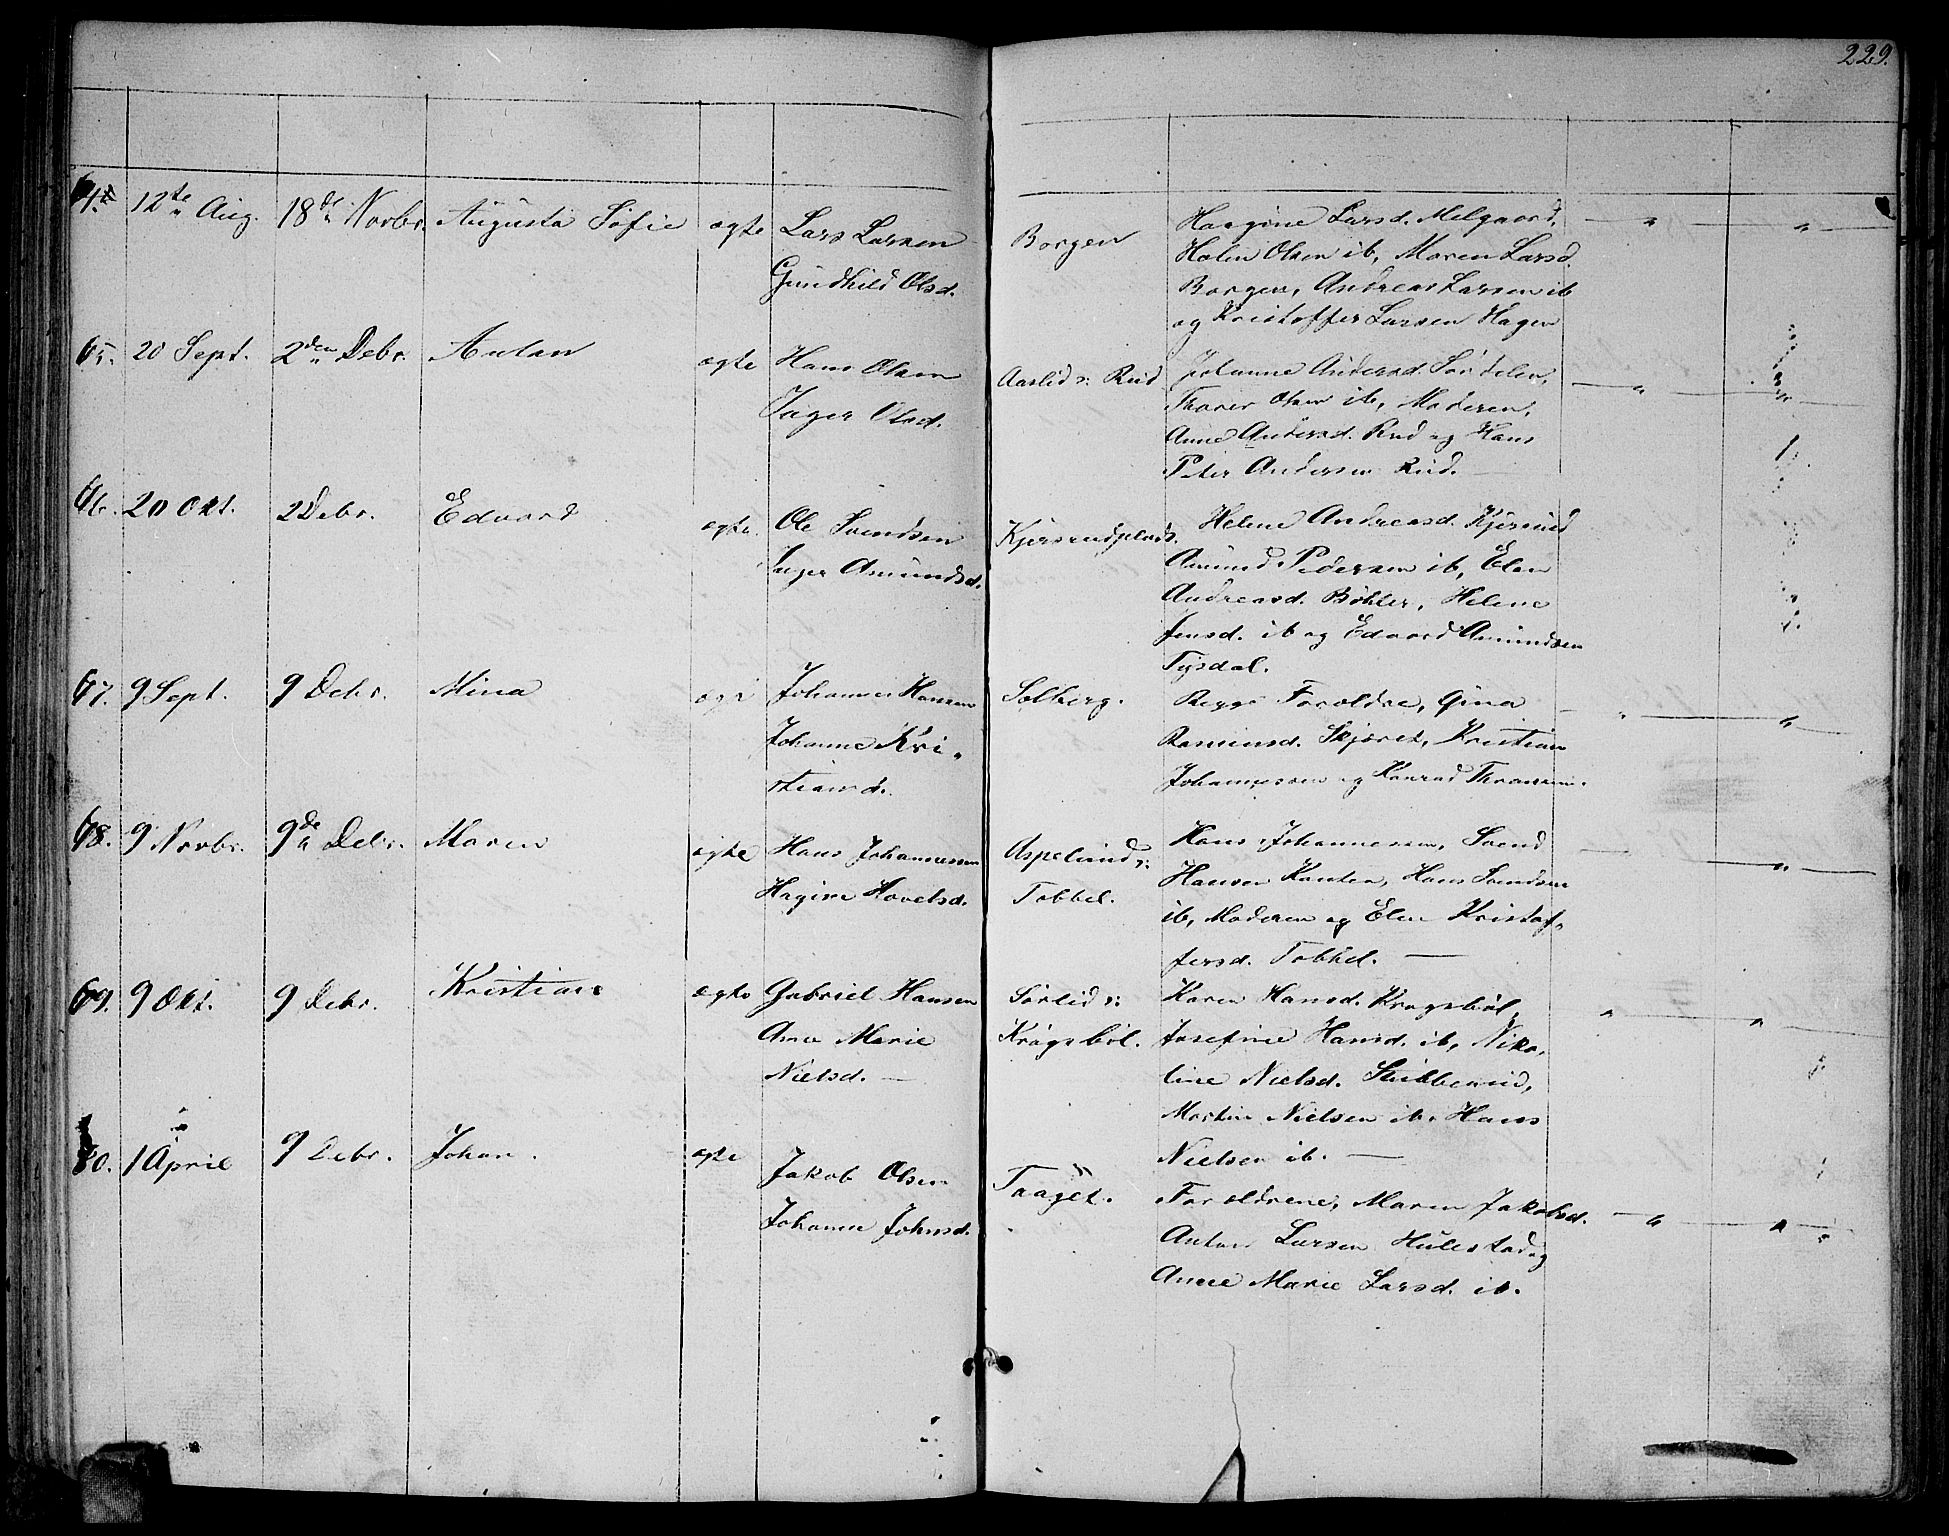 229.
64. 12te Aug. 18de Novbr. Augusta Sofie ægte Lars Larsen Borgen Haagine Larsd. Melgaard,
Gundhild Olsd. Holin Olsen ib, Maren Larsd.
Borgen, Andreas Larsen ib
og Kristoffer Larsen Hagen
65. 20 Sept. 2den Debr. Anton ægte Hans Olsen Aaslid v: Rud Johanne Andersd. Sørdelen,
Inger Olsd. Thorer Olsen ib, Moderen,
Anne Andersd. Rud og Hans
Peter Andersen Rud.
66. 20 Okt. 2 Debr. Edvard ægte. Ole Svendsen Kjersrudplads. Helene Andreasd. Kjersrud
Inger Amundsd. Amund Pedersen ib, Elen
Andreasd. Böhler, Helene
Jensd. ib og Edvard Amundsen
Tysdal.
67. 9 Sept. 9 Debr. Mina ægte Johannes Hansen Solberg. Begge Forældre, Gina
Johanne Kri- Rasmusd. Skjæret, Kristian
stiansd. Johannessen og Konrad Thoresen.
68. 9 Novbr. 9de Debr. Maren ægte Hans Johannessen Aspelund v: Hans Johannessen, Svend
Hagine Hovelsd. Tobbel. Hansen Kanten, Hans Svendsen
ib, Moderen og Elen Kristof-
fersd. Tobbel.
69. 9 Okt. 9 Debr. Kristian ægte Gabriel Hansen Sørlid v: Karen Hansd. Krogsböl,
Anne Marie Krogsböl. Josefine Hansd. ib, Niko-
Nielsd. line Nielsd. Stubberud,
Martin Nielsen ib, Hans
Nielsen ib.
80. 1 April 9 Debr. Johan. ægte Jakob Olsen Taaget. Forældrene, Maren Jakobsd.
Johanne Johnsd. Anton Larsen Hulestad og
Anne Marie Larsd. ib.